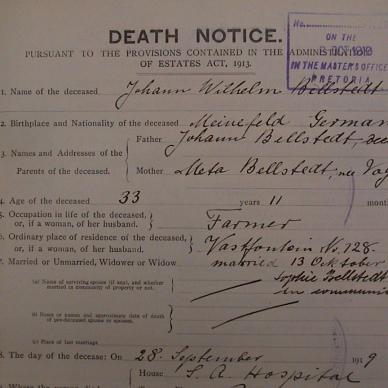 DEATH NOTICE.
ON THE
OCT 1919
IN THE MASTER'S OFFICE
PRETORIA
PURSUANT TO THE PROVISIONS CONTAINED IN THE ADMINISTRATION
OF ESTATES ACT, 1913.
1. Name of the deceased Johann Wilhelm Bellstedt
2. Birthplace and Nationality of the deceased Meinefeld German
3. Names and Addresses of the Parents of the deceased.
Father Johann Bellstedt, dec
Mother Meta Bellstedt, nee
4. Age of the deceased 33 years 11 month
5. Occupation in life of the deceased, or, if a woman, of her husband.
Farmer
6. Ordinary place of residence of the deceased, or, if a woman, of her husband.
Vastfontein Nr. 728
7. Married or Unmarried, Widower or Widow married 13 Oktober
(a) Name of surviving spouse (if any), and whether married in community of property or not.
Sophie Bellstedt
in
(b) Name or names and approximate date of death of pre-deceased spouse or spouses.
(c) Place of last marriage
8. The day of the decease: On 28. September 1919
House S. A. Hospital